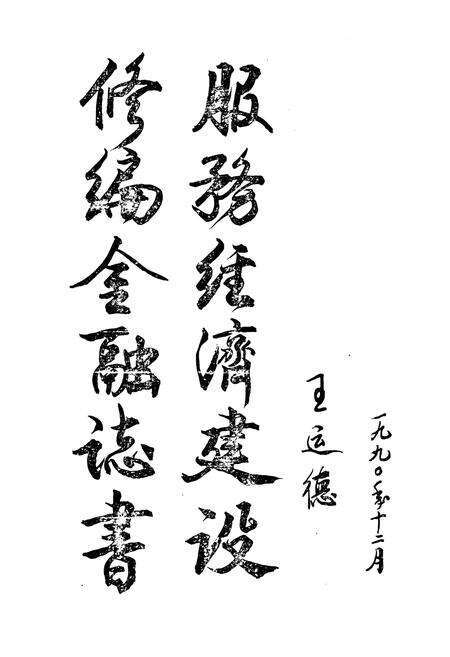 修编金融誌書
服務経濟建设
王运德
一九九〇年十二月